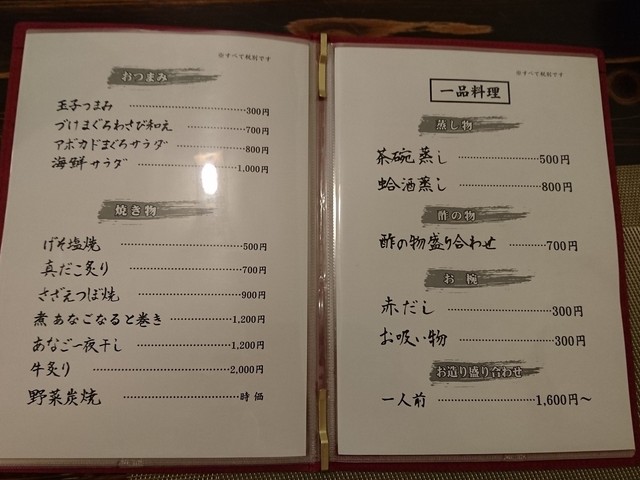 ※すべて税別です
おつまみ
玉子つまみ 300円
づけまぐろわさび和え 700円
アボカドまぐろサラダ 800円
海鮮サラダ 1,000円
焼き物
げそ塩焼 500円
真だこ炙り 700円
さざえつぼ焼 900円
煮あなごなると巻き 1,200円
あなご一夜干し 1,200円
牛炙り 2,000円
野菜炭焼 時価
※すべて税別です
一品料理
蒸し物
茶碗蒸し 500円
蛤酒蒸し 800円
酢の物
酢の物盛り合わせ 700円
お椀
赤だし 300円
お吸い物 300円
お造り盛り合わせ
一人前 1,600円～